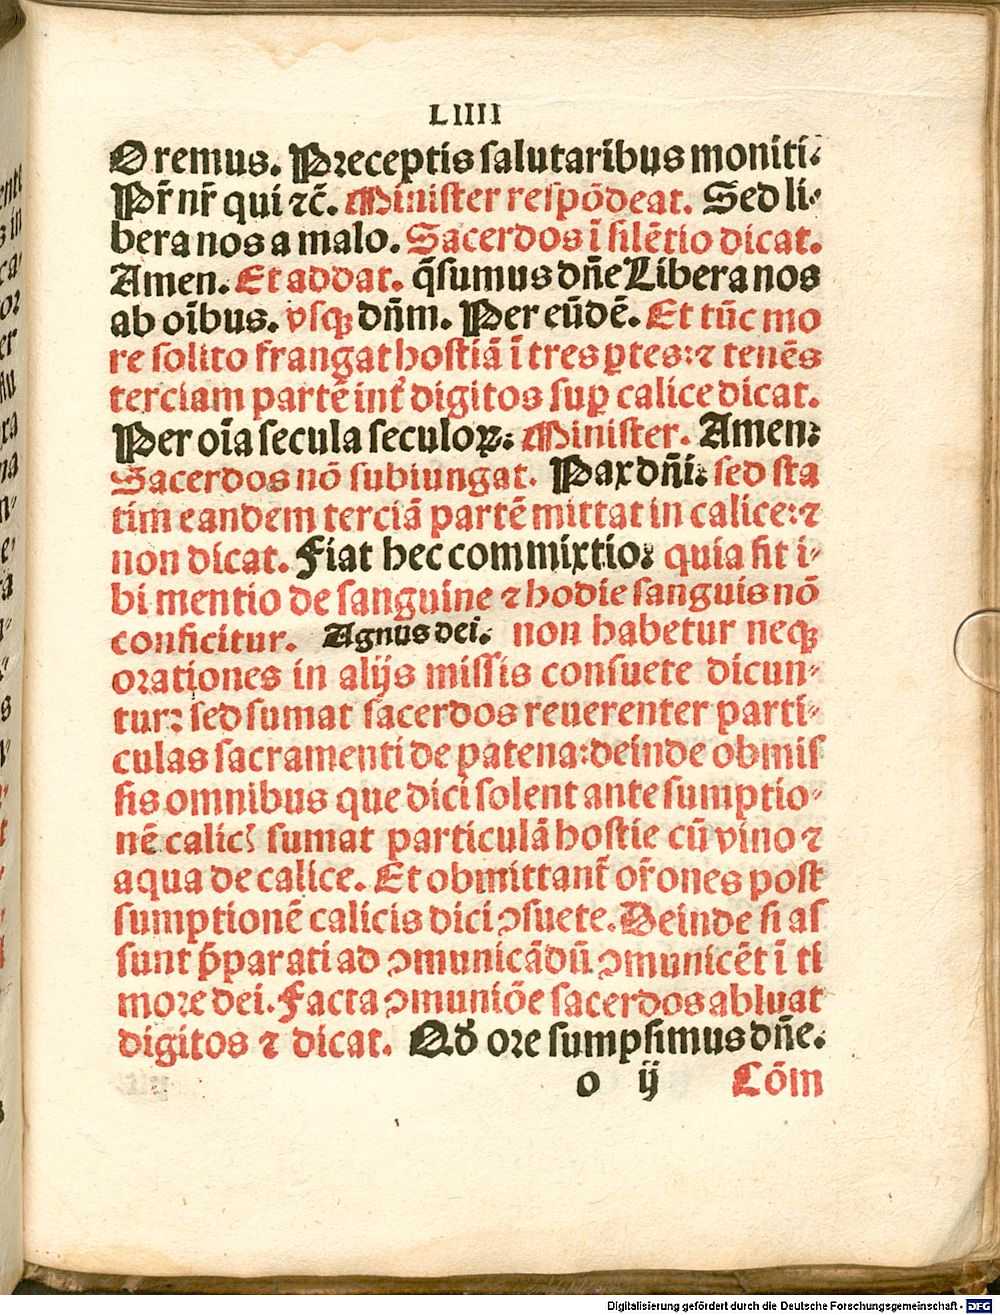 LIIII
Oremus. Preceptis salutaribus moniti:
Pr̃ nr̃ qui ⁊c̃. Minister respõdeat. Sed li-
bera nos a malo. Sacerdos ĩ silẽtio dicat.
Amen. Et addat. q̃sumus dñe Libera nos
ab oĩbus. vsqꝫ dñm. Per eũdẽ. Et tũc mo
re solito frangat hostiã ĩ tres ꝑtes: ⁊ tenẽs
terciam partẽ int̃ digitos suꝑ calice dicat.
Per oĩa secula seculoꝝ: Minister. Amen:
Sacerdos nõ subiungat. Pax dñi: sed sta
tim eandem terciã partẽ mittat in calice: ⁊
non dicat. Fiat hec commixtio: quia fit i-
bi mentio de sanguine ⁊ hodie sanguis nõ
conficitur. Agnus dei. non habetur neqꝫ
orationes in alijs missis consuete dicun-
tur: sed sumat sacerdos reuerenter parti-
culas sacramenti de patena: deinde obmis
sis omnibus que dici solent ante sumptio-
nẽ calicꝭ sumat particulã hostie cũ vino ⁊
aqua de calice. Et obmittant̃ or̃ones post
sumptionẽ calicis dici ꝯsuete. Deinde si as
sunt p̃parati ad ꝯmunicãdũ ꝯmunicẽt ĩ ti
more dei. Facta ꝯmuniõe sacerdos abluat
digitos ⁊ dicat. Qđ ore sumpsimus dñe.
o ij Cõm
Digitalisierung gefördert durch die Deutsche Forschungsgemeinschaft - DFG